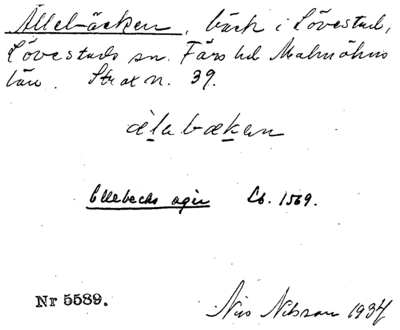 Ällebäcken, bäck i Lövestad,
Lövestads sn. Färs hd Malmöhus
län. Strax n. 39.
älabækan
Ellebecks agir Lb. 1569.
Nr 5589.
Nils Nilsson 1934